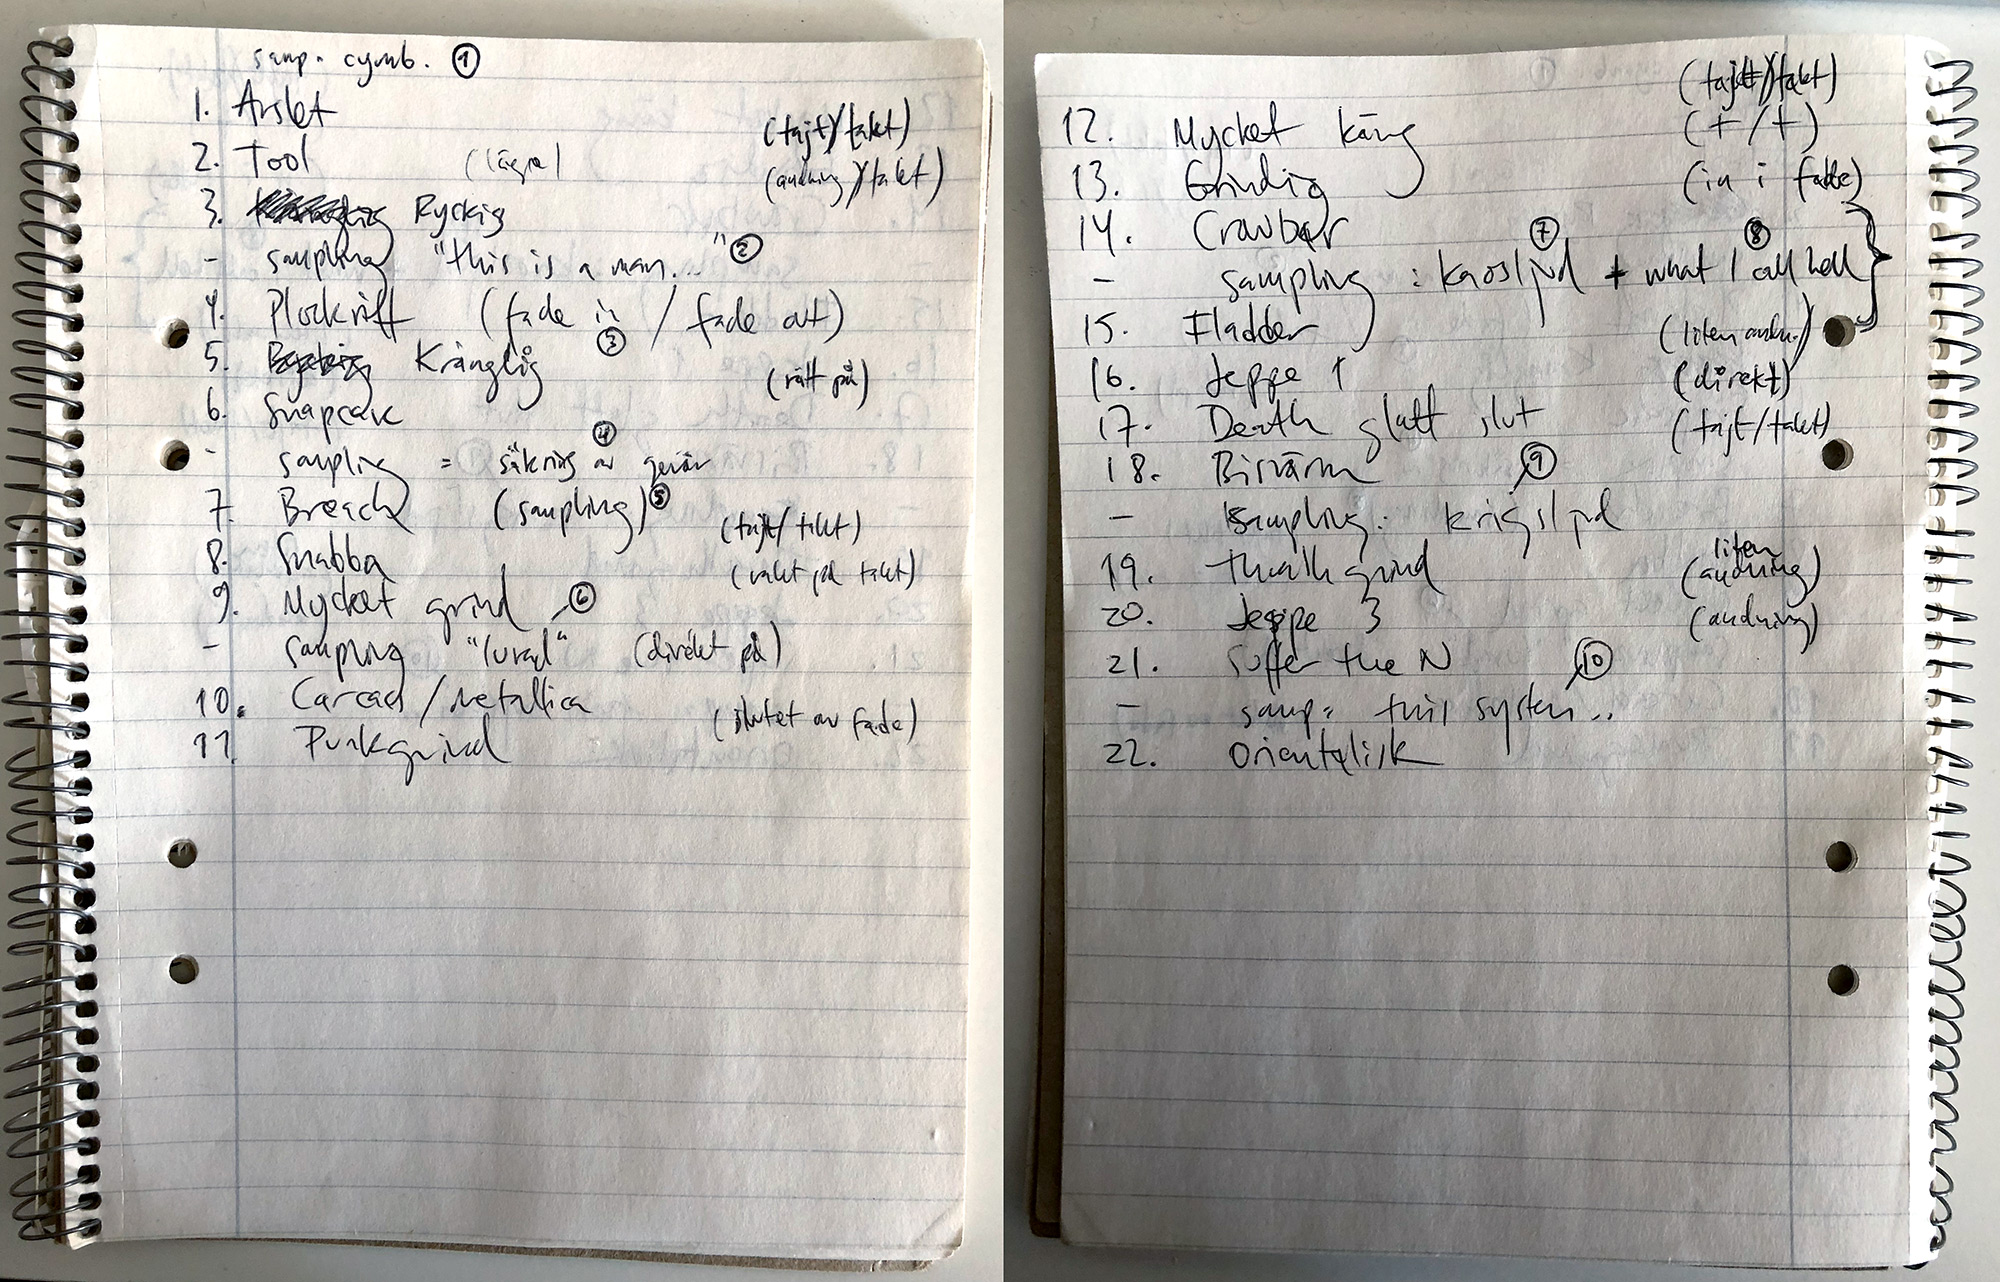 samp. cymb. ①
1. Arslet
(tajt)/takt)
2. Tool (lägre)
(andning)/takt)
3. Ryckig
- sampling "this is a man...." ②
4. Plockriff (fade in / fade out)
5. Krånglig ③
(rätt på)
6. Snapcase
- sampling = säkring av gevär ④
7. Breach (sampling) ⑤
(tajt/takt)
8. Snabba
(rakt på takt)
9. Mycket grind ⑥
- sampling "lurad" (direkt på)
10. Carcass/Metallica
(slutet av fade)
11. Punkgrind
(tajt)/takt)
12. Mycket käng (+/+)
13. Grindig (in i fade)
14. Crowbar
- sampling : kaosljud ⑦ + what I call hell ⑧
15. Fladder (liten andn.)
16. Jeppe 1 (direkt)
17. Death glatt slut (tajt/takt)
18. Bisvärm ⑨
- sampling: krigsljud
19. thrash grind (liten andning)
20. Jeppe 3 (andning)
21. Suffer the N ⑩
- samp= this system..
22. Orientalisk